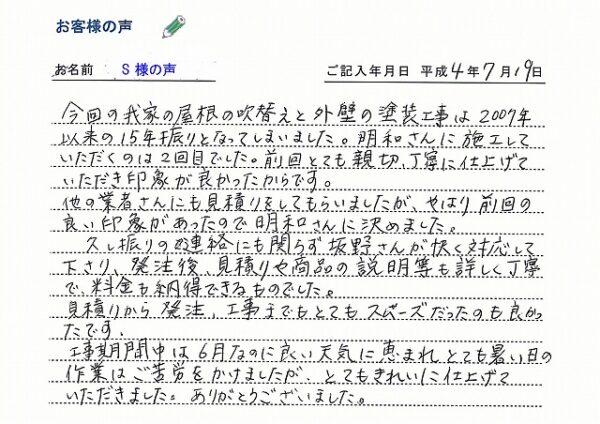 お客様の声
お名前 S 様の声
ご記入年月日 平成 4 年 7 月 19 日
今回の我家の屋根の吹替えと外壁の塗装工事は2007年
以来の15年振りとなってしまいました。明和さんに施工して
いただくのは2回目でした。前回とても親切、丁寧に仕上げて
いただき印象が良かったからです。
他の業者さんにも見積りをしてもらいましたが、やはり前回の
良い印象があったので明和さんに決めました。
久し振りの連絡にも関らず坂野さんが快く対応して
下さり、発注後、見積りや商品の説明等も詳しく丁寧
で、料金も納得できるものでした。
見積りから発注、工事までもとてもスムーズだったのも良かっ
たです。
工事期間中は6月なのに良い天気に恵まれとても暑い日の
作業はご苦労をかけましたが、とてもきれいに仕上げて
いただきました。ありがとうございました。